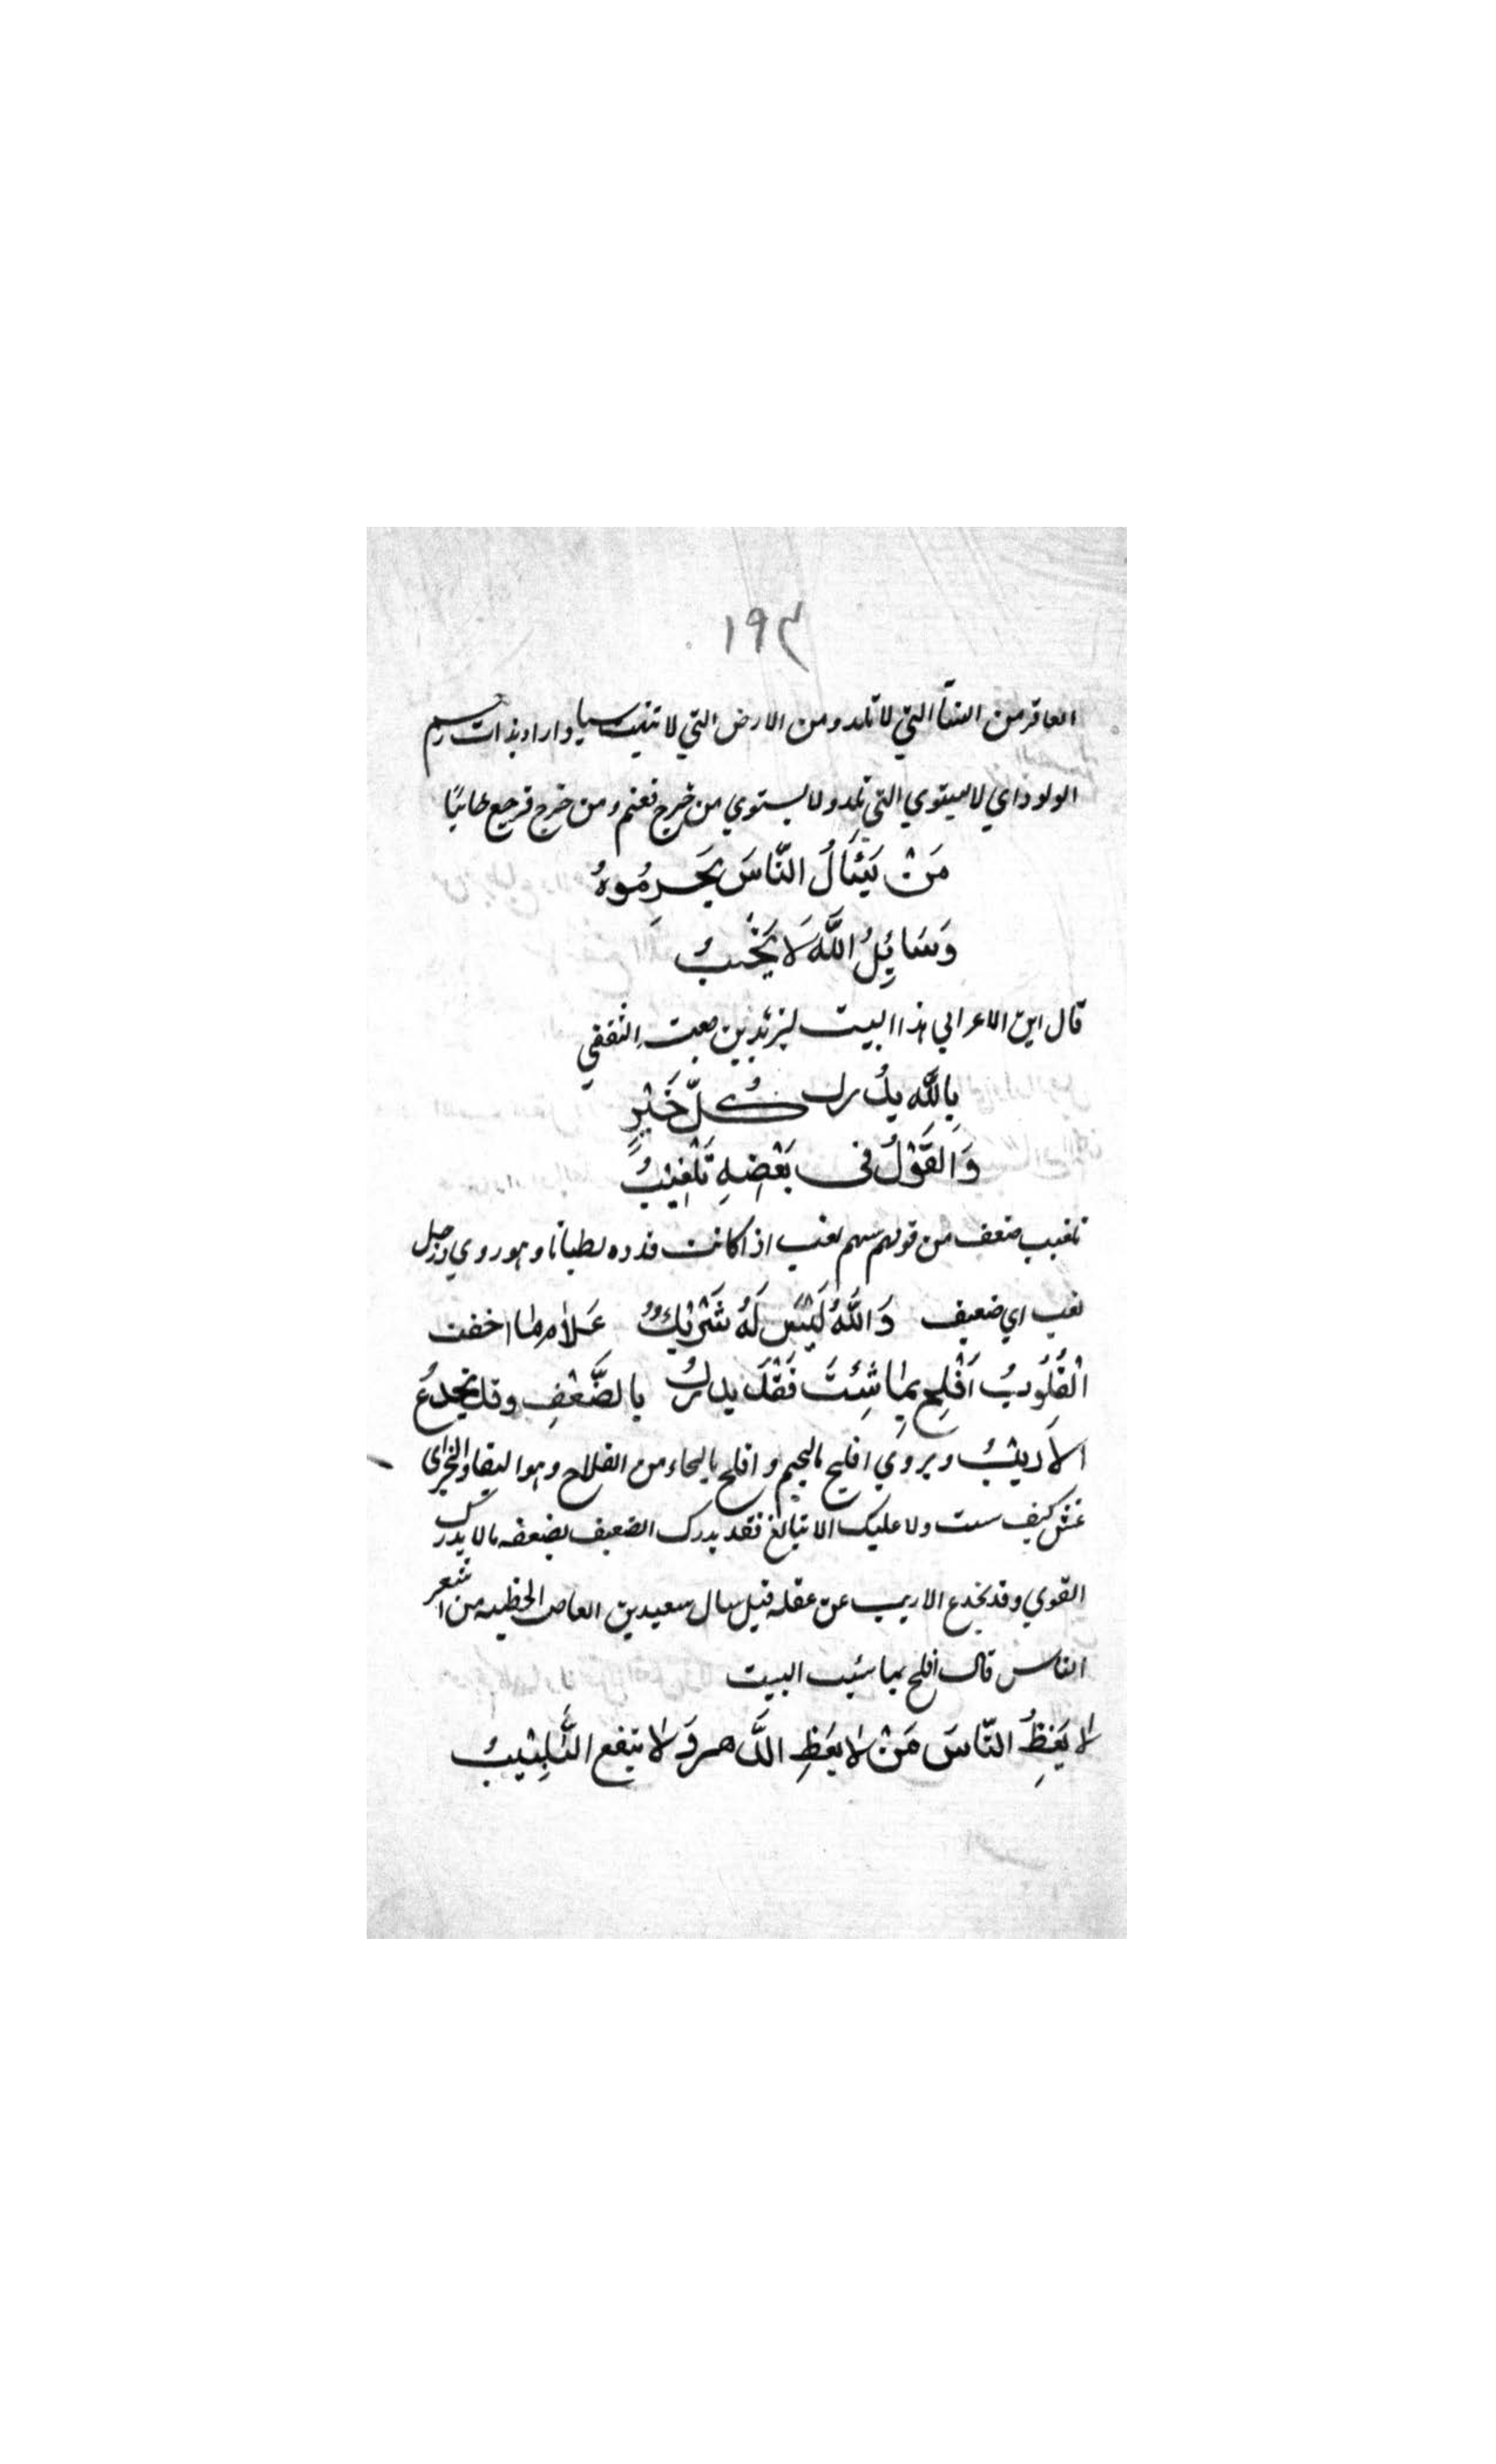 ١٩٣
العاقر من النسآ التي لا تلد ومن الارض التي لا تنبت سيا واراد بذات رحم
الولود اي لا يستوي التي تلد ولا يستوي من خرج فغنم ومن خرج فرجع خائبًا
مَنْ يَسْئَالُ النَّاسَ يَحْرِمُوهُ
وَسَائِلُ اللَّهِ لَا يَخِيْبُ
قال ابن الاعرابي هذا البيت ليزيد بن ضبت الثقفي
بِاللَّهِ يدُرك كُلّ خَيْرٍ
وَالقَوْلُ فى بَعْضِهِ تَلْغِيْبُ
تلغيب ضعف من قولهم سهم لغب اذا كانت قذذه بطنانا وهو ردي ورجل
لغب اي ضعيف وَاللَّهُ لَيْسَ لَهُ شَرْيْكٌ عَلاَّم ما اخفت
الْقُلُوبُ اَفْلِحْ بِمَا شِئْتَ فَقْدَ يدركُ بِالضَّعْفِ وقد يخدعُ
الاَرِيْبُ ويروي افلج بالجيم وافلح بالحاء من الفلاح وهو البقاء والخير اي
عش كيف سىت ولا عليك الا تبالغ فقد يدرك الضعيف بضعفه مالا يدرك
القوي وقد يخدع الاريب عن عقله قيل سال سعيد بن العاص الحطيه من اشعر
الناس قال افلح بما شئت البيت
لا يَعِظُ النَّاسَ مَنْ لا يَعِظِ الدَّهر وَلا ينفع التَّلْبِيْبُ